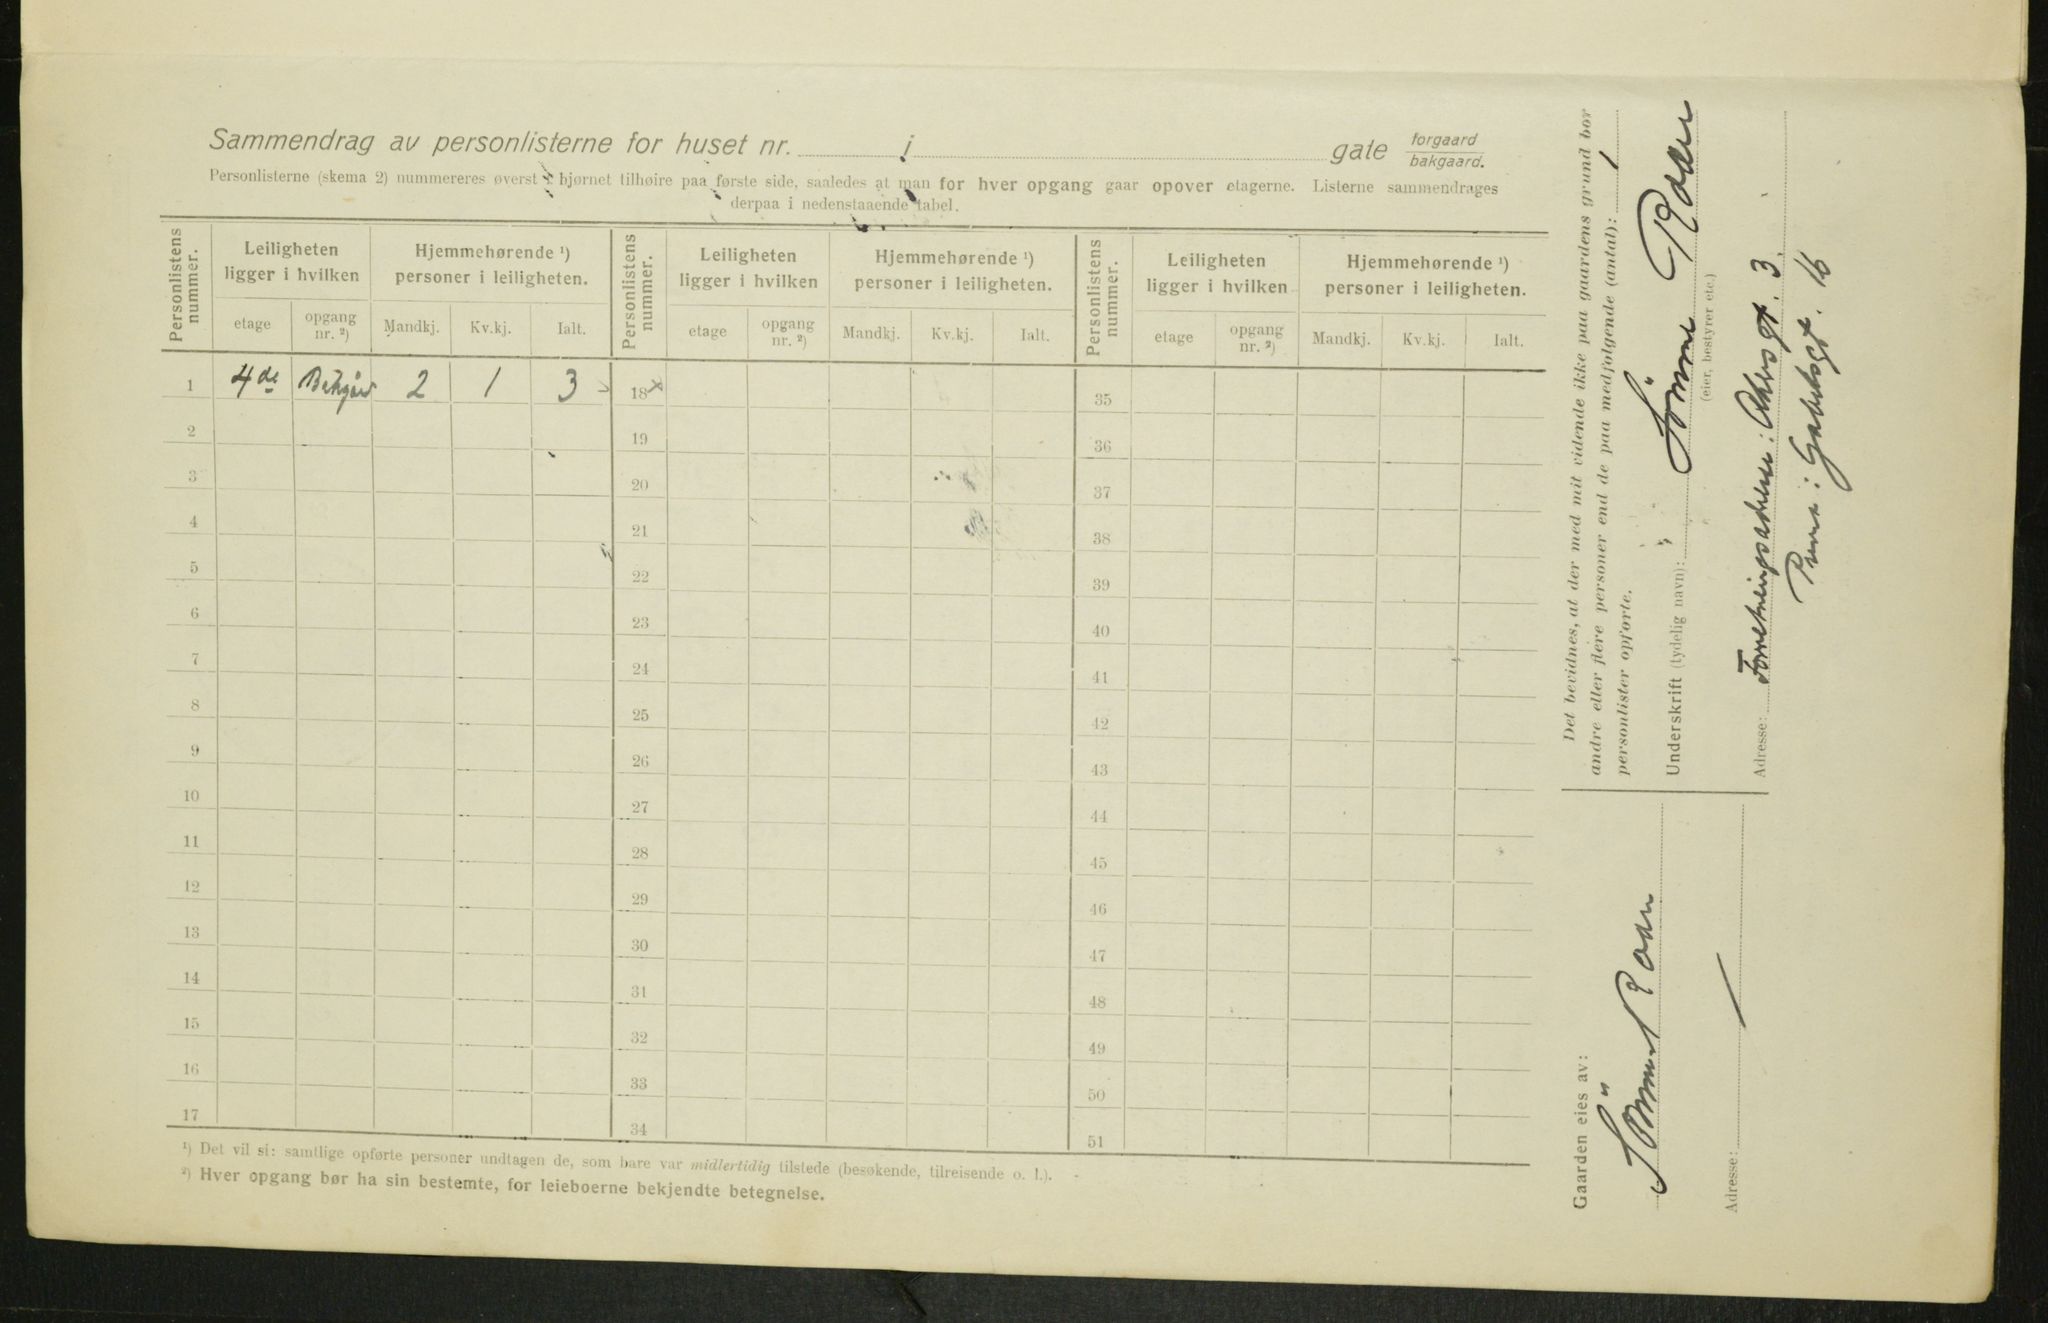 Sammendrag av personlisterne for huset nr. i gate forgaard bakgaard.
Personlisterne (skema 2) nummereres øverst i hjørnet tilhøire paa første side, saaledes at man for hver opgang gaar opover etagerne. Listerne sammendrages
derpaa i nedenstaaende tabel.
Personlistens nummer. Leiligheten ligger i hvilken Hjemmehørende ¹) personer i leiligheten. Personlistens nummer. Leiligheten ligger i hvilken Hjemmehørende ¹) personer i leiligheten. Personlistens nummer. Leiligheten ligger i hvilken Hjemmehørende ¹) personer i leiligheten.
etage opgang nr. ²) Mandkj. Kv.kj. Ialt. etage opgang nr. ²) Mandkj. Kv.kj. Ialt. etage opgang nr. ²) Mandkj. Kv.kj. Ialt.
1 4de Bakgård 2 1 3 18 x 35
2 19 36
3 20 37
4 21 38
5 22 39
6 23 40
7 24 41
8 25 42
9 26 43
10 27 44
11 28 45
12 29 46
13 30 47
14 31 48
15 32 49
16 33 50
17 34 51
¹) Det vil si: samtlige opførte personer undtagen de, som bare var midlertidig tilstede (besøkende, tilreisende o. l.).
²) Hver opgang bør ha sin bestemte, for leieboerne bekjendte betegnelse.
Det bevidnes, at der med mit vidende ikke paa gaardens grund bor
andre eller flere personer end de paa medfølgende (antal): 1
personlister opførte.
Underskrift (tydelig navn): Sömme
(eier, bestyrer etc.)
Adresse: Forretningsadresse: Akersgt. 3.
Privat: Gabelsgt. 16
Gaarden eies av:
Adresse: —